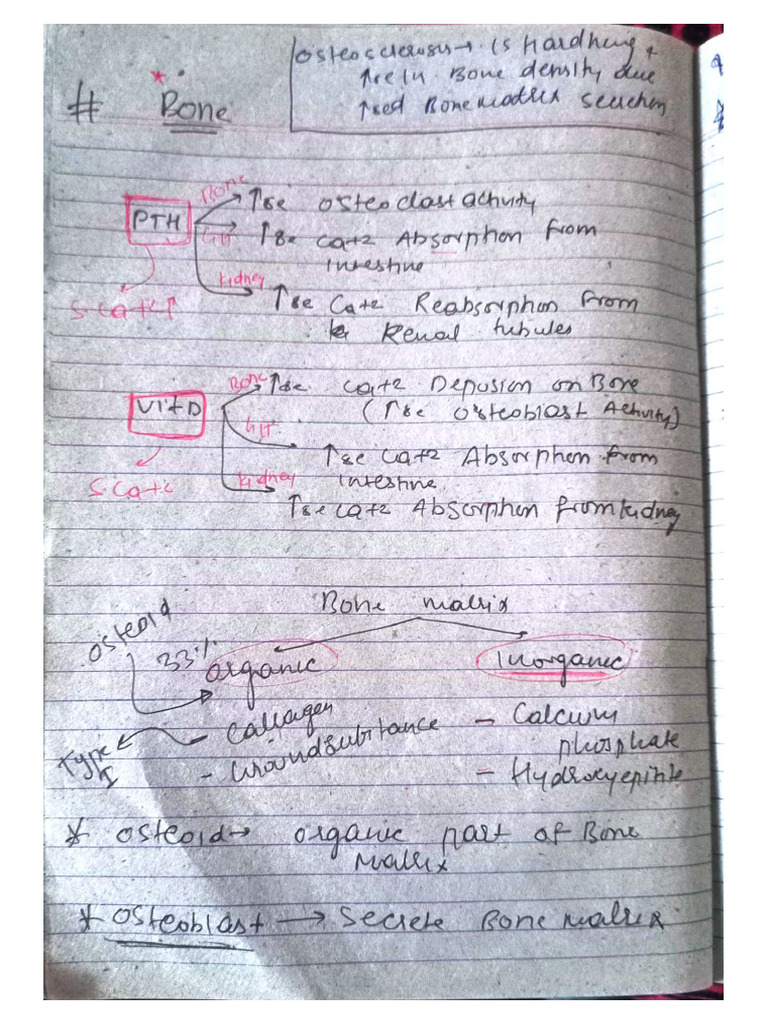 osteosclerosis → is hardning &
↑se in Bone density due
↑sed Bone matrix secretion
* 
# Bone
PTH
Bone ↑se osteoclast activity
GIT ↑se ca+2 Absorption from
intestine
kidney ↑se Ca+2 Reabsorption from
Renal tubules
S. Ca+2 ↑
Vit D
Bone ↑se ca+2 Depostion on Bone
(↑se Osteoblast Activity)
GIT ↑se Ca+2 Absorption from
intestine
kidney ↑se ca+2 Absorption from kidney
S Ca+2
Bone matrix
Osteoid
33%
organic
Inorganic
- Collagen
Type I
- Groundsubstance
- Calcium
phosphate
- Hydroxyepinte
* osteoid → organic part of Bone
matrix
* osteoblast → secrete Bone matrix